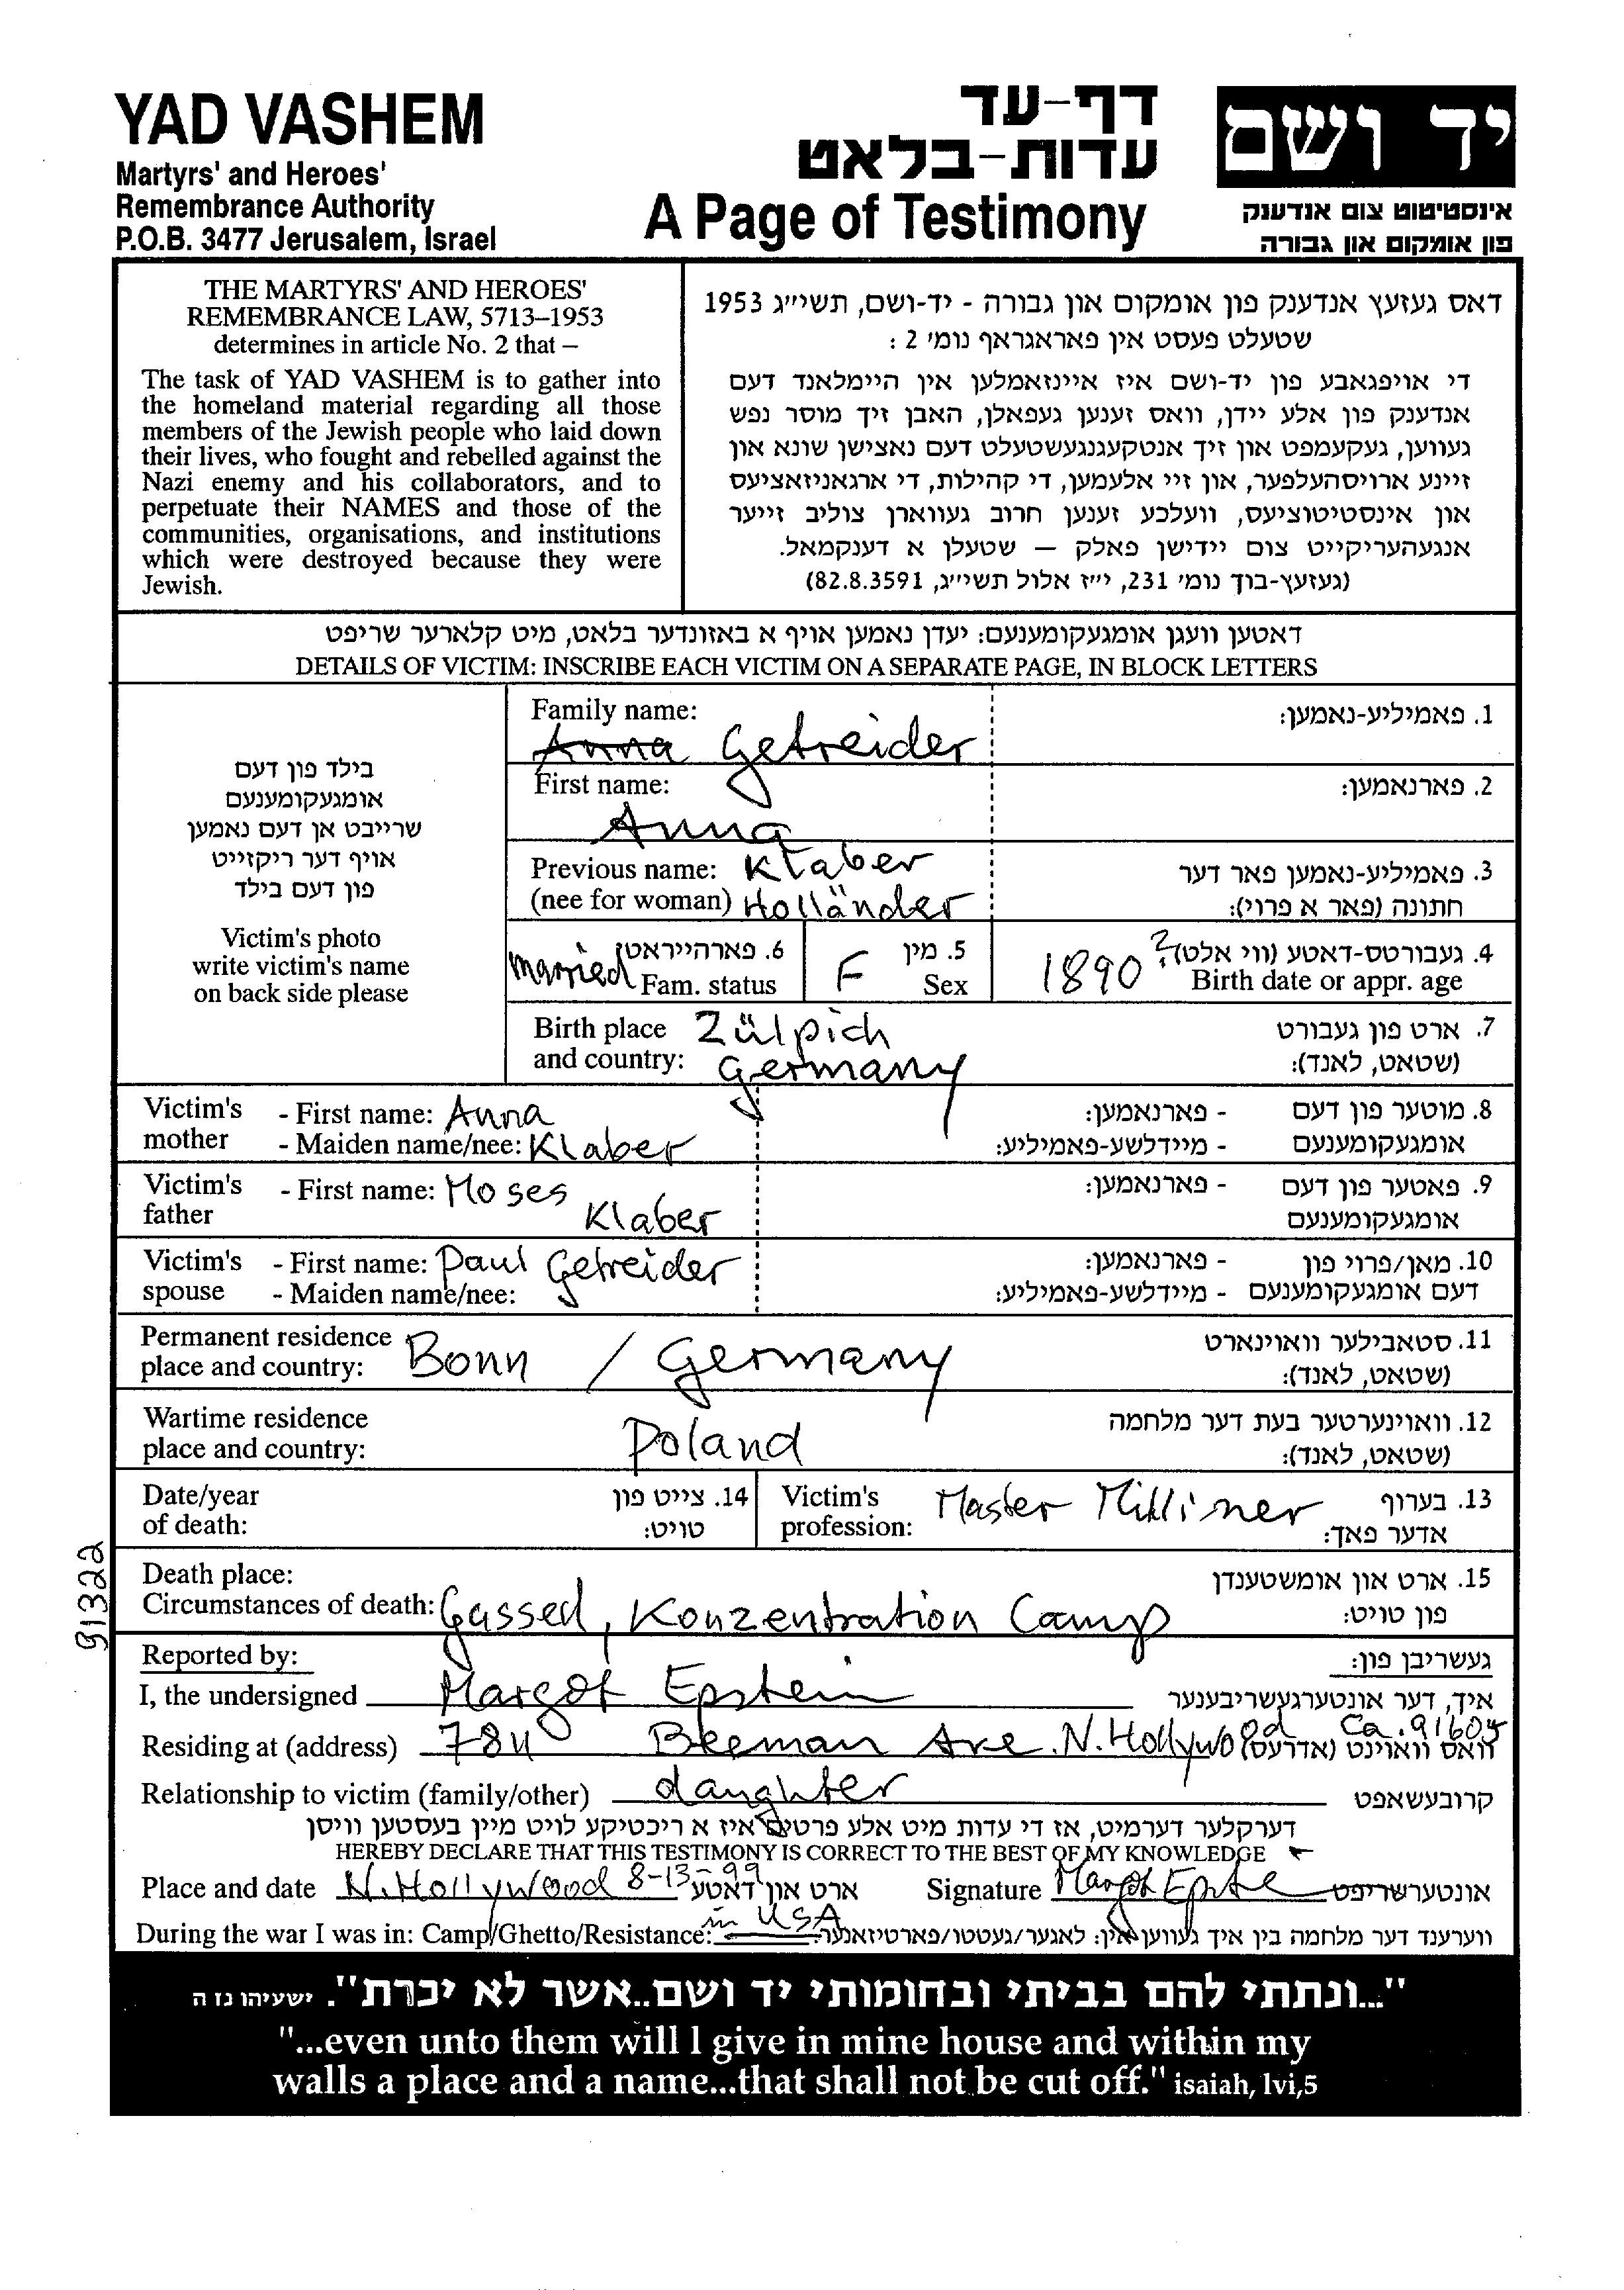 YAD VASHEM
Martyrs' and Heroes'
Remembrance Authority
P.O.B. 3477 Jerusalem, Israel
דף-עד
עדות-בלאט
A Page of Testimony
יד ושם
אינסטיטוט צום אנדענק
פון אומקום און גבורה
THE MARTYRS' AND HEROES'
REMEMBRANCE LAW, 5713–1953
determines in article No. 2 that –
The task of YAD VASHEM is to gather into
the homeland material regarding all those
members of the Jewish people who laid down
their lives, who fought and rebelled against the
Nazi enemy and his collaborators, and to
perpetuate their NAMES and those of the
communities, organisations, and institutions
which were destroyed because they were
Jewish.
דאס געזעץ אנדענק פון אומקום און גבורה - יד-ושם, תשי״ג 1953
שטעלט פעסט אין פאראגראף נומ׳ 2 :
די אויפגאבע פון יד-ושם איז איינזאמלען אין היימלאנד דעם
אנדענק פון אלע יידן, וואס זענען געפאלן, האבן זיך מוסר נפש
געווען, געקעמפט און זיך אנטקעגנגעשטעלט דעם נאצישן שונא און
זיינע ארויסהעלפער, און זיי אלעמען, די קהילות, די ארגאניזאציעס
און אינסטיטוציעס, וועלכע זענען חרוב געווארן צוליב זייער
אנגעהעריקייט צום יידישן פאלק — שטעלן א דענקמאל.
(געזעץ-בוך נומ׳ 231, י״ז אלול תשי״ג, 82.8.3591)
דאטען וועגן אומגעקומענעם: יעדן נאמען אויף א באזונדער בלאט, מיט קלארער שריפט
DETAILS OF VICTIM: INSCRIBE EACH VICTIM ON A SEPARATE PAGE, IN BLOCK LETTERS
בילד פון דעם
אומגעקומענעם
שרייבט אן דעם נאמען
אויף דער ריקזייט
פון דעם בילד
Victim's photo
write victim's name
on back side please
Family name: 1. פאמיליע-נאמען:
Anna Getreider
First name: 2. פארנאמען:
Anna
Previous name: Klaber 3. פאמיליע-נאמען פאר דער
(nee for woman) Holländer חתונה (פאר א פרוי):
married 6. פארהייראט F 5. מין 1890? 4. געבורטס-דאטע (ווי אלט)
Fam. status Sex Birth date or appr. age
Birth place Zülpich 7. ארט פון געבורט
and country: Germany (שטאט, לאנד):
Victim's - First name: Anna - פארנאמען: 8. מוטער פון דעם
mother - Maiden name/nee: Klaber - מיידלשע-פאמיליע: אומגעקומענעם
Victim's - First name: Moses - פארנאמען: 9. פאטער פון דעם
father Klaber אומגעקומענעם
Victim's - First name: Paul Getreider - פארנאמען: 10. מאן/פרוי פון
spouse - Maiden name/nee: - מיידלשע-פאמיליע: דעם אומגעקומענעם
Permanent residence Bonn / Germany 11. סטאבילער וואוינארט
place and country: (שטאט, לאנד):
Wartime residence Poland 12. וואוינערטער בעת דער מלחמה
place and country: (שטאט, לאנד):
Date/year 14. צייט פון Victim's Master Milliner 13. בערוף
of death: טויט: profession: אדער פאך:
Death place: 15. ארט און אומשטענדן
Circumstances of death: Gassed, Konzentration Camp פון טויט:
91322
Reported by: געשריבן פון:
I, the undersigned Margot Epstein איך, דער אונטערגעשריבענער
Residing at (address) 7811 Beeman Ave. N. Hollywood Ca. 91605 וואס וואוינט (אדרעס)
Relationship to victim (family/other) daughter קרובעשאפט
דערקלער דערמיט, אז די עדות מיט אלע פרטים איז א ריכטיקע לויט מיין בעסטען וויסן
HEREBY DECLARE THAT THIS TESTIMONY IS CORRECT TO THE BEST OF MY KNOWLEDGE
Place and date N. Hollywood 8-13-99 ארט און דאטע Signature Margot Epste אונטערשריפט
During the war I was in: Camp/Ghetto/Resistance: in USA ווערענד דער מלחמה בין איך געווען אין: לאגער/געטטו/פארטיזאנער
"...ונתתי להם בביתי ובחומותי יד ושם..אשר לא יכרת". ישעיהו נז ה
"...even unto them will I give in mine house and within my
walls a place and a name...that shall not be cut off." isaiah, lvi,5